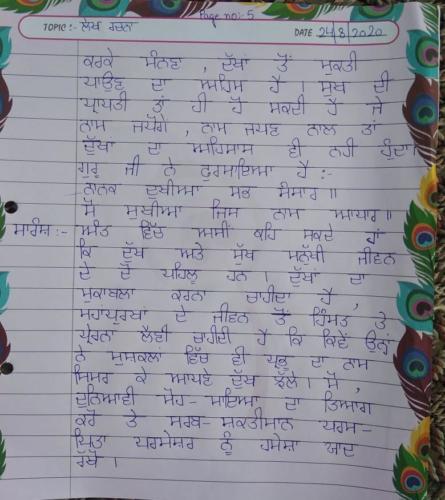 Page no:- 5
TOPIC :- ਲੇਖ ਰਚਨਾ
DATE 24/8/2020
ਕਰਕੇ ਮੰਨਣਾ , ਦੁੱਖਾਂ ਤੋਂ ਮੁਕਤੀ
ਪਾਉਣ ਦਾ ਅਹਿਮ ਹੈ । ਸੁਖ ਦੀ
ਪ੍ਰਾਪਤੀ ਤਾਂ ਹੀ ਹੋ ਸਕਦੀ ਹੈ ਜੇ
ਨਾਮ ਜਪੋਗੇ , ਨਾਮ ਜਪਣ ਨਾਲ ਤਾਂ
ਦੁੱਖਾਂ ਦਾ ਅਹਿਸਾਸ ਵੀ ਨਹੀਂ ਹੁੰਦਾ
ਗੁਰੂ ਜੀ ਨੇ ਫੁਰਮਾਇਆ ਹੈ :-
ਨਾਨਕ ਦੁਖੀਆ ਸਭ ਸੰਸਾਰ ॥
ਸੋ ਸੁਖੀਆ ਜਿਸ ਨਾਮ ਆਧਾਰ ॥
ਸਾਰੰਸ਼ :- ਅੰਤ ਵਿੱਚ ਅਸੀਂ ਕਹਿ ਸਕਦੇ ਹਾਂ
ਕਿ ਦੁੱਖ ਅਤੇ ਸੁੱਖ ਮਨੁੱਖੀ ਜੀਵਨ
ਦੇ ਦੋ ਪਹਿਲੂ ਹਨ । ਦੁੱਖਾਂ ਦਾ
ਮੁਕਾਬਲਾ ਕਰਨਾ ਚਾਹੀਦਾ ਹੈ ,
ਮਹਾਪੁਰਖਾਂ ਦੇ ਜੀਵਨ ਤੋਂ ਹਿੰਮਤ ਤੇ
ਪ੍ਰੇਰਨਾ ਲੈਣੀ ਚਾਹੀਦੀ ਹੈ ਕਿ ਕਿਵੇਂ ਉਨ੍ਹਾਂ
ਨੇ ਮੁਸ਼ਕਲਾਂ ਵਿੱਚ ਵੀ ਪ੍ਰਭੂ ਦਾ ਨਾਮ
ਸਿਮਰ ਕੇ ਆਪਣੇ ਦੁੱਖ ਝੱਲੇ । ਸੋ ,
ਦੁਨਿਆਵੀ ਮੋਹ-ਮਾਇਆ ਦਾ ਤਿਆਗ
ਕਰੋ ਤੇ ਸਰਬ-ਸ਼ਕਤੀਮਾਨ ਪਰਮ-
ਪਿਤਾ ਪਰਮੇਸਰ ਨੂੰ ਹਮੇਸ਼ਾ ਯਾਦ
ਰੱਖੋ ।